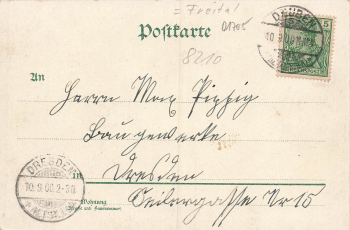 = Freital
01705
DEUBEN
10 9 00
5
Postkarte
8210
An
Herrn Max Pipzig
Baugewerke
DRESDEN
10. 9. 00. 2-3N
in Dresden
Wohnung
(Straße und Hausnummer)
Seilergasse Nr 15